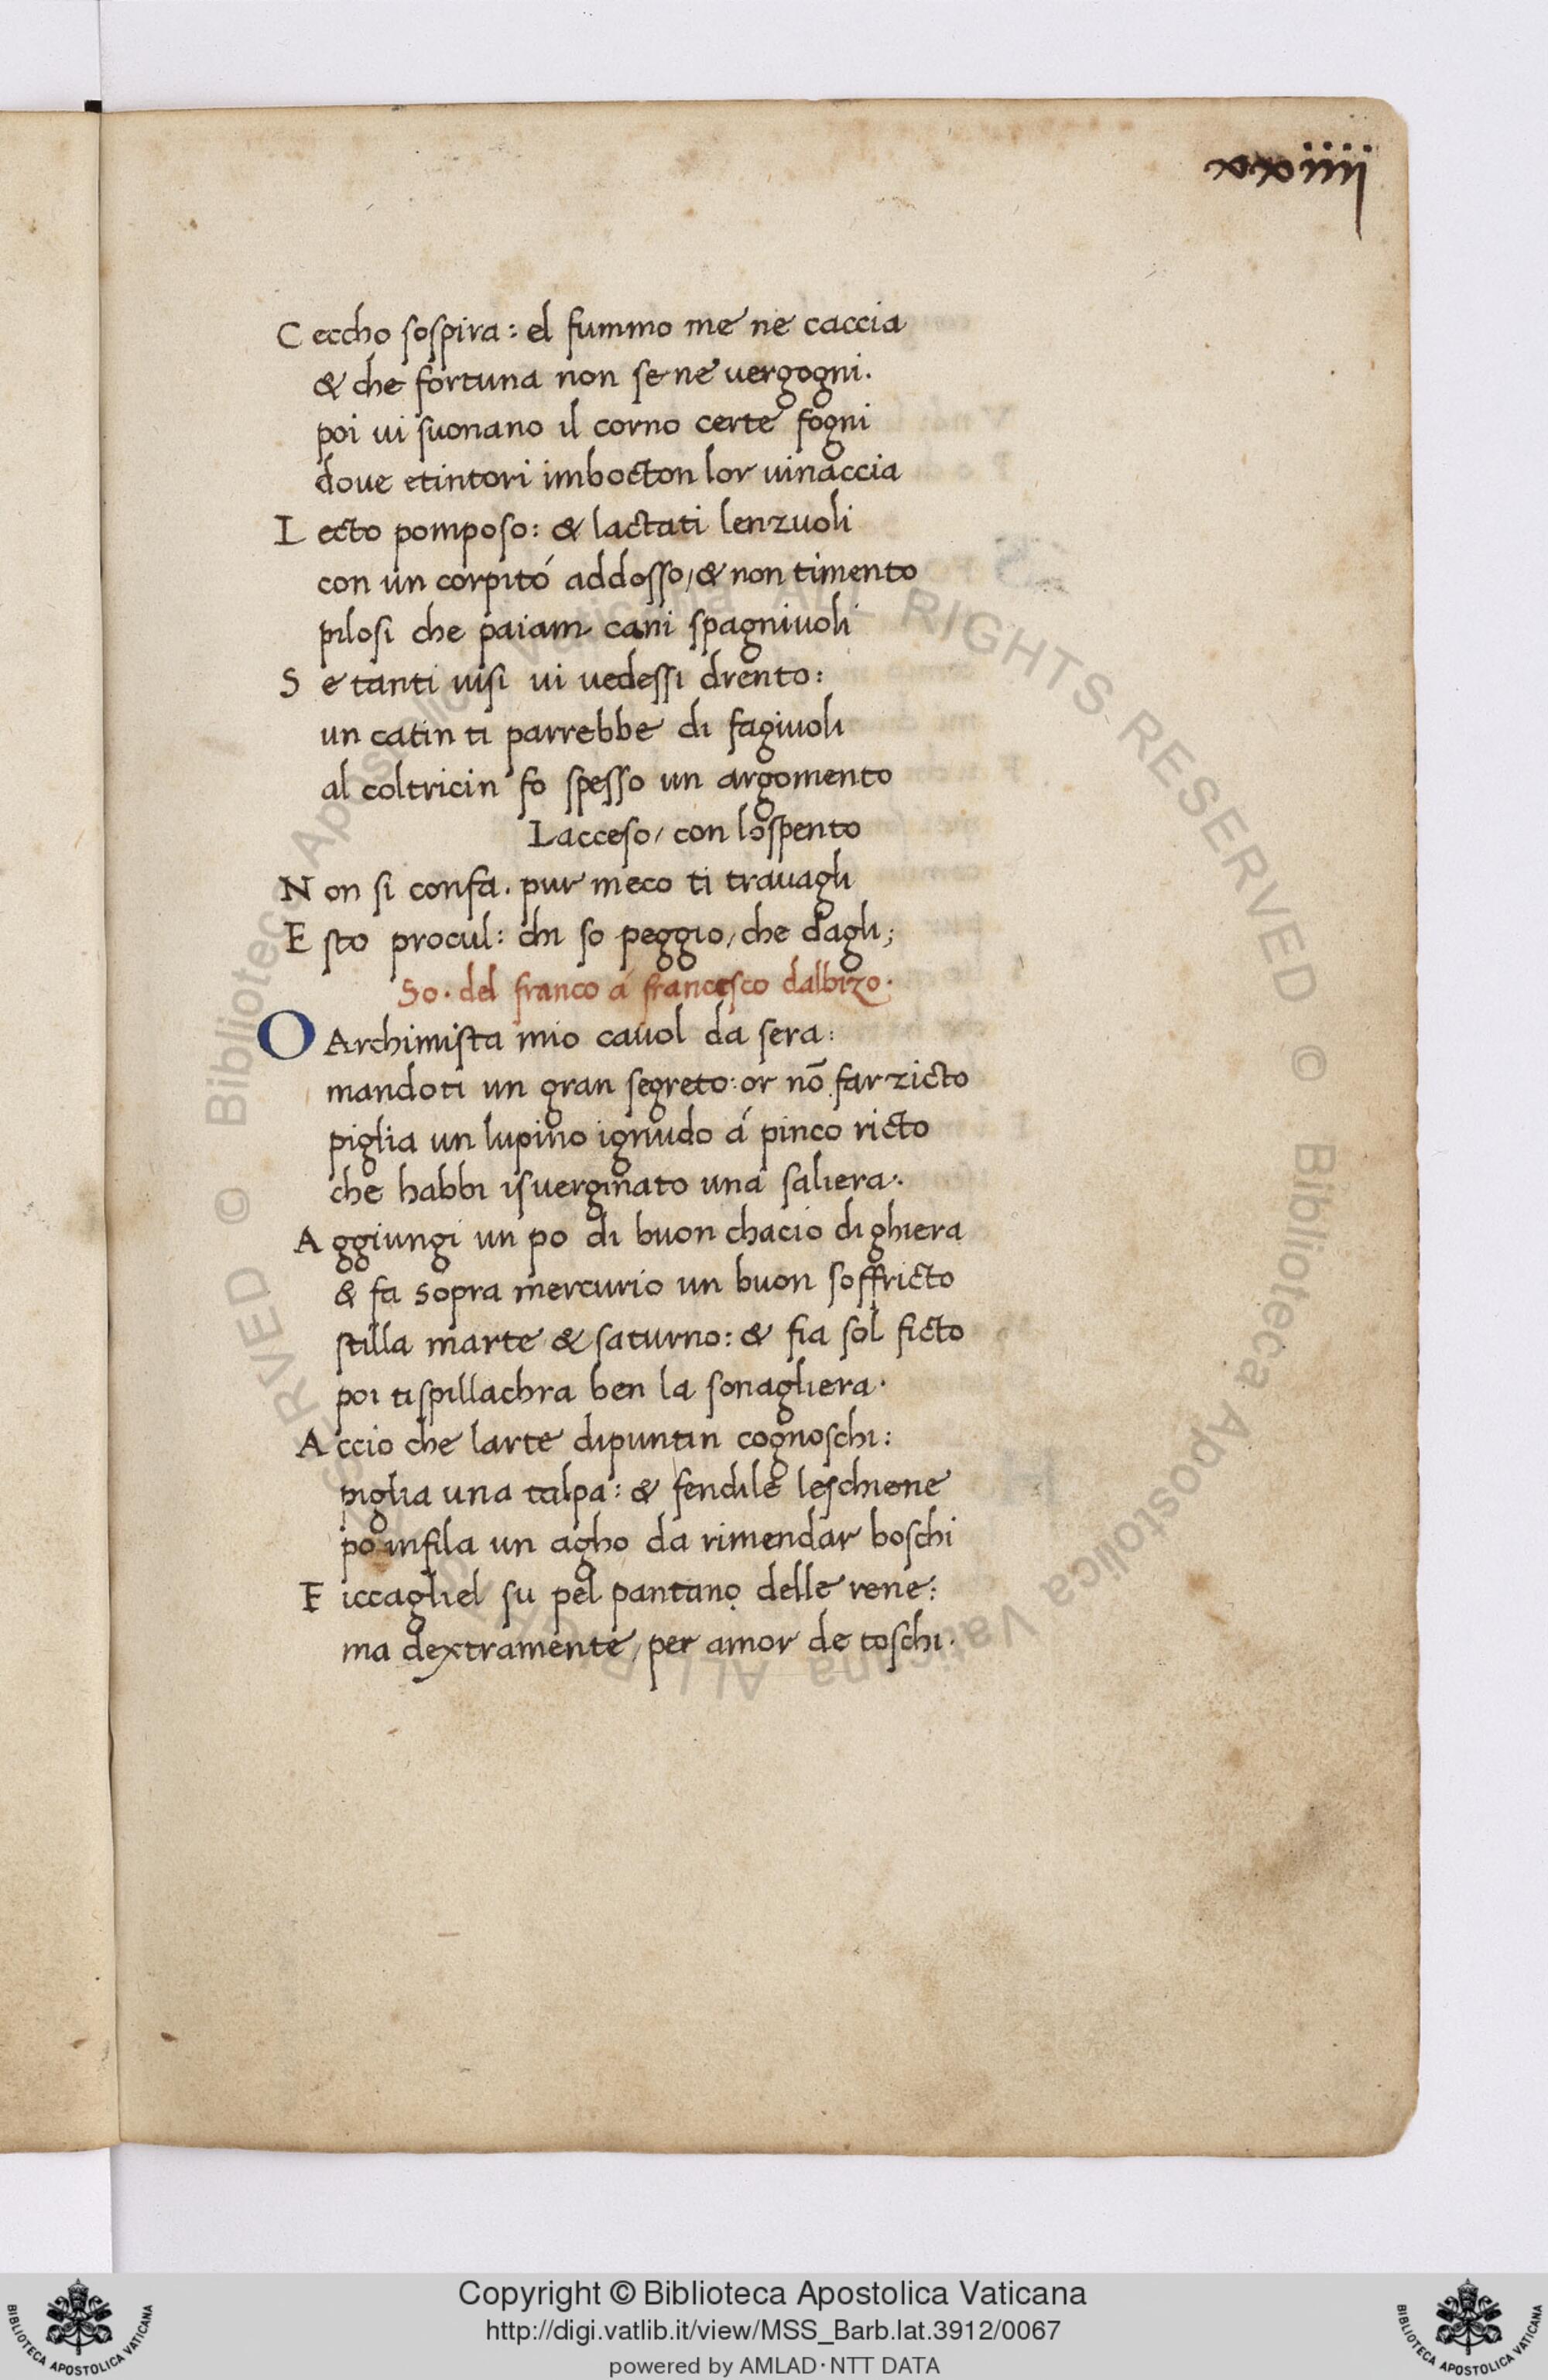 xxiiij
C eccho sospira: el fummo me ne caccia
& che fortuna non se ne vergogni.
poi ui suonano il corno certe fogni
doue etintori imbocton lor uinaccia
L ecto pomposo: & lactati lenzuoli
con un corpitó addosso/& non timento
pilosi che paiam cani spagniuoli
S e tanti uisi ui uedessi drento:
un catin ti parrebbe di fagiuoli
al coltricin fo spesso un argomento
Lacceso/ con lospento
N on si confa. pur meco ti trauagli
E sto procul: chi so peggio/che dagli;
So. del franco á francesco dalbizo.
O Archimista mio cauol da sera:
mandoti un gran segreto: or nō far zicto
piglia un lupino ignudo á pinco ricto
che habbi isuerginato una saliera.
A ggiungi un po di buon chacio di ghiera
& fa sopra mercurio un buon soffricto
stilla marte & saturno: & fia sol ficto
poi tispillachra ben la sonagliera.
A ccio che larte dipuntin cognoschi:
piglia una talpa: & fendile leschiene
po infila un agho da rimendar boschi
F iccagliel su pel pantano delle rene:
ma dextramente/per amor de toschi.
Copyright © Biblioteca Apostolica Vaticana
http://digi.vatlib.it/view/MSS_Barb.lat.3912/0067
powered by AMLAD·NTT DATA
BIBLIOTECA APOSTOLICA VATICANA
BIBLIOTECA APOSTOLICA VATICANA
© Biblioteca Apostolica Vaticana ALL RIGHTS RESERVED
© Biblioteca Apostolica Vaticana ALL RIGHTS RESERVED